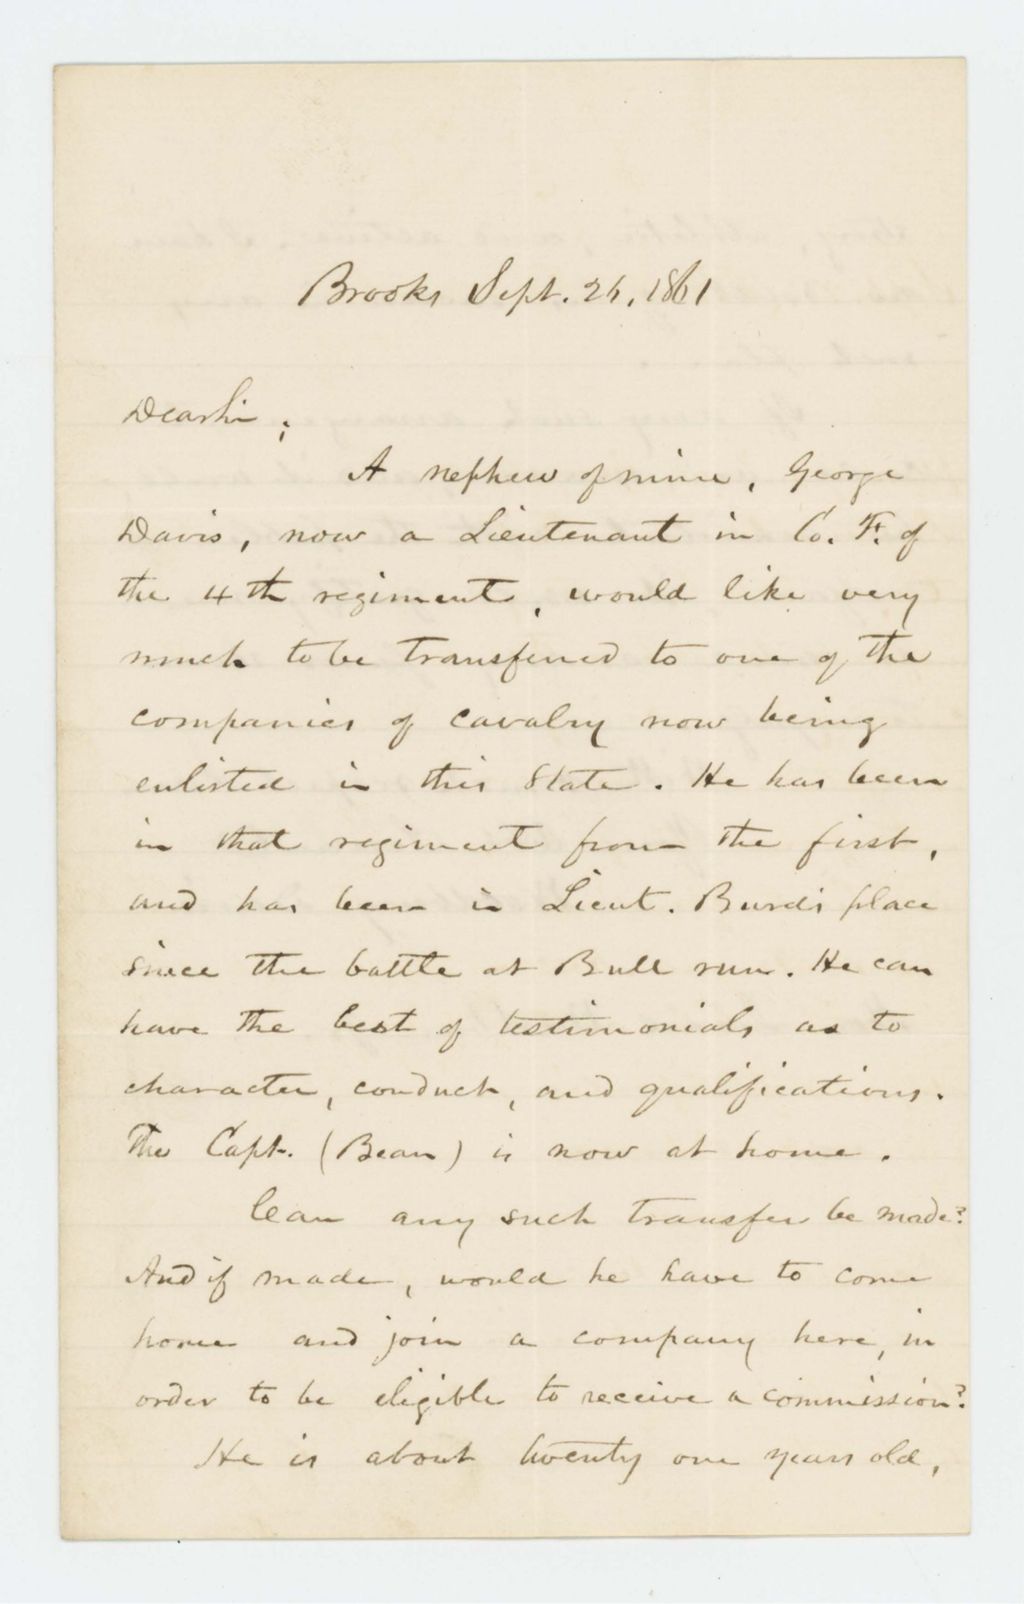 Brooks Sept. 26, 1861
Dear Sir;
A nephew of mine, George
Davis, now a Lieutenant in Co. F. of
the 4th regiment, would like very
much to be transferred to one of the
companies of cavalry now being
enlisted in this State. He has been
in that regiment from the first,
and has been in Lieut. Burd's place
since the battle at Bull run. He can
have the best of testimonials as to
character, conduct, and qualifications.
The Capt. (Bean) is now at home.
Can any such transfer be made?
And if made, would he have to come
home and join a company here, in
order to be eligible to receive a commission?
He is about twenty one years old,